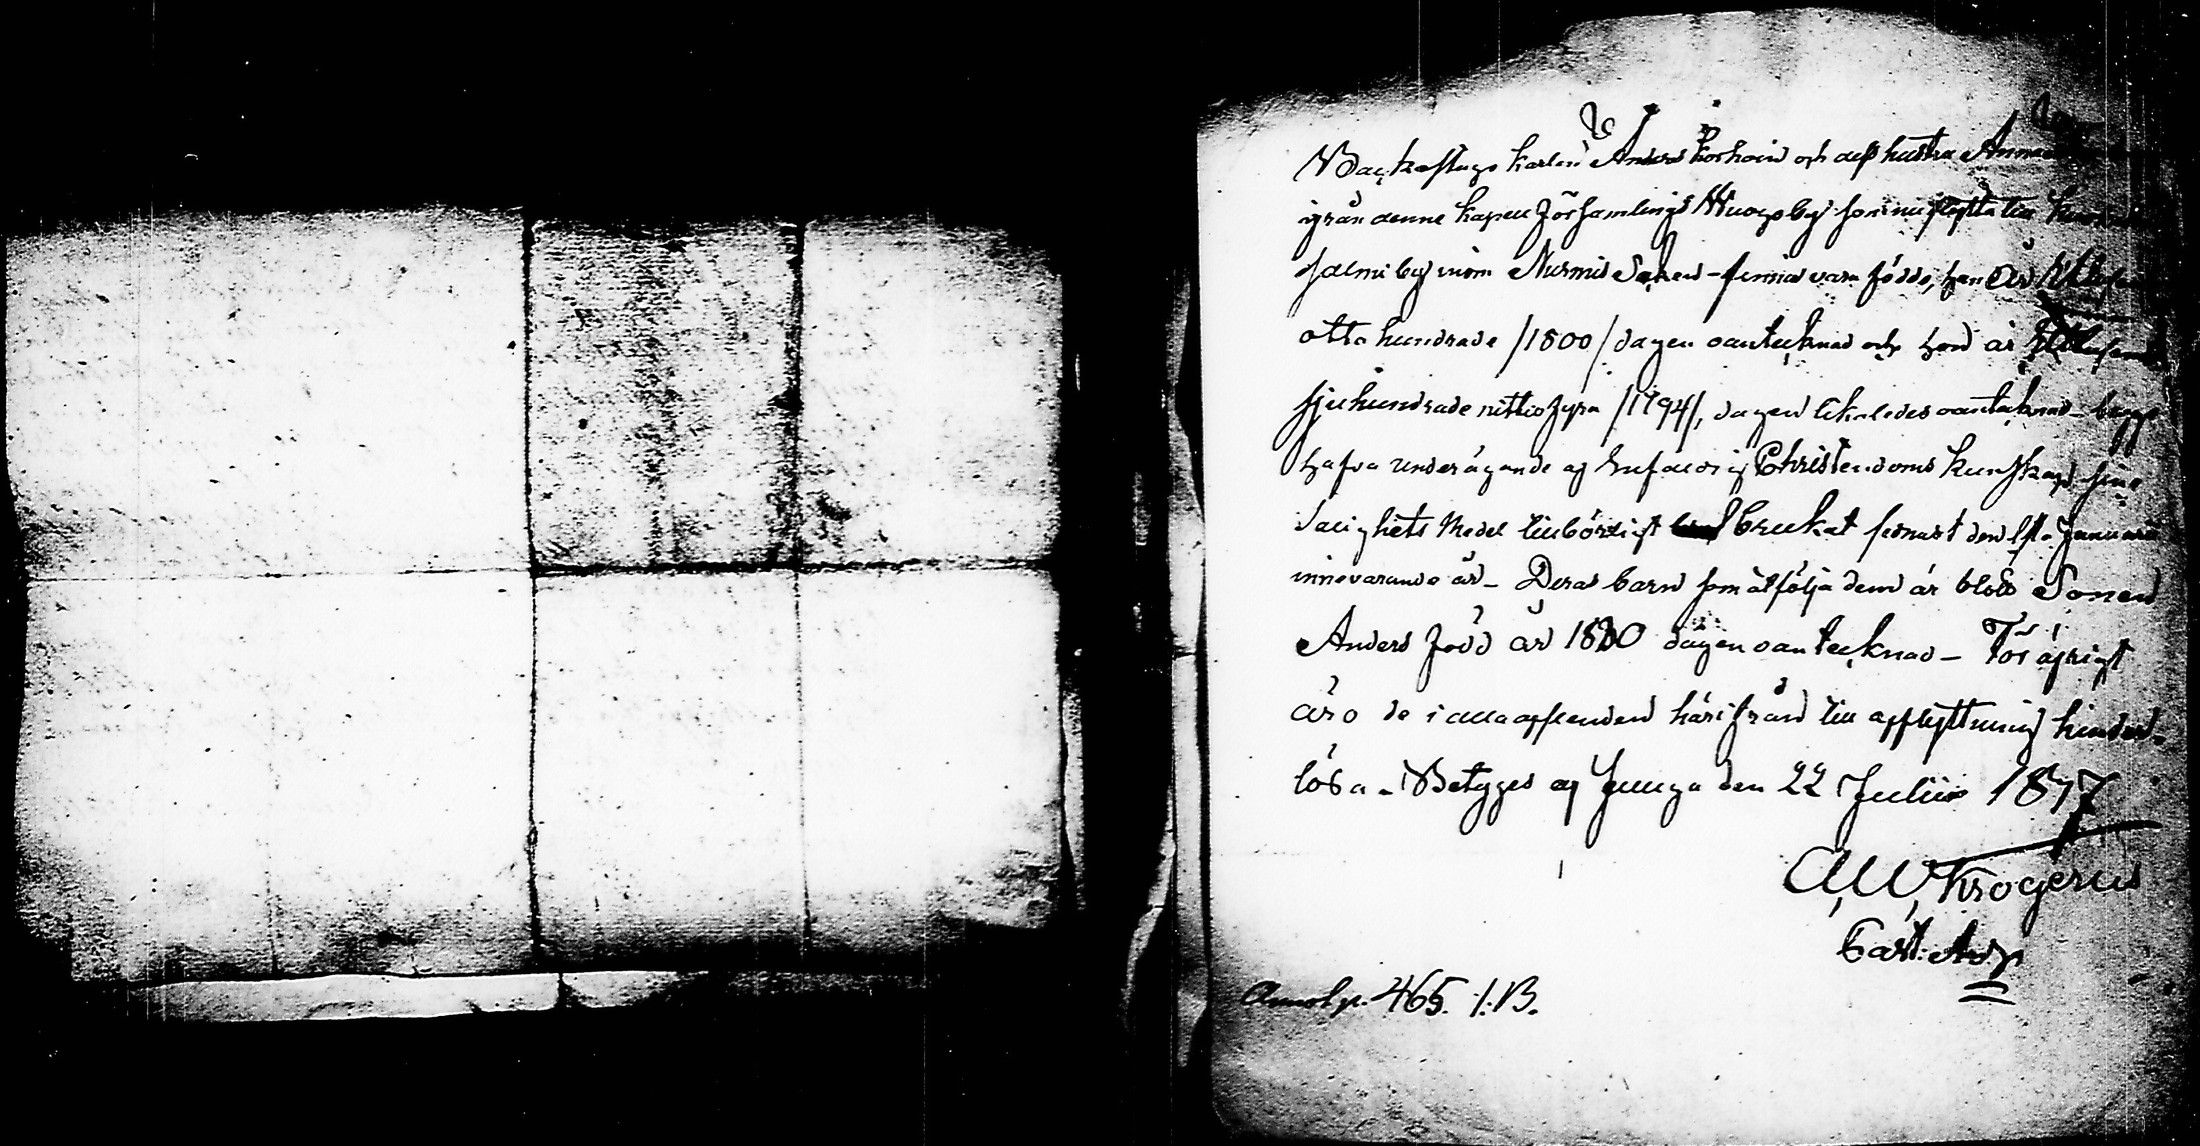 Backstugo karlen Anders Korhoin och dess hustru Anna
ifrån denne kapell Församlings by som nu flytta till
Salmi by inom Nurmis Soken - finnas vara födde, han År
otta hundrade /1800/ dagen oantecknad och hon år
sjuhundrade nittio fyra /1794/, dagen likaledes oantecknad - begge
hafva under ägande af Enfaldig Christendoms kunskap sine
Salighets Medel tillbörligt brukat sednast den Januari
innevarande år - Deras barn som åtfölja dem är blott Sonen
Anders född år 1830 dagen oantecknad - För öfrigt
äro de i alla afseenden härifrån till afflyttning hinder-
lösa - Betyges af Juuga den 22 Julii 1847
A, W, Krogerus
Cast. Adj.
465. /:B.